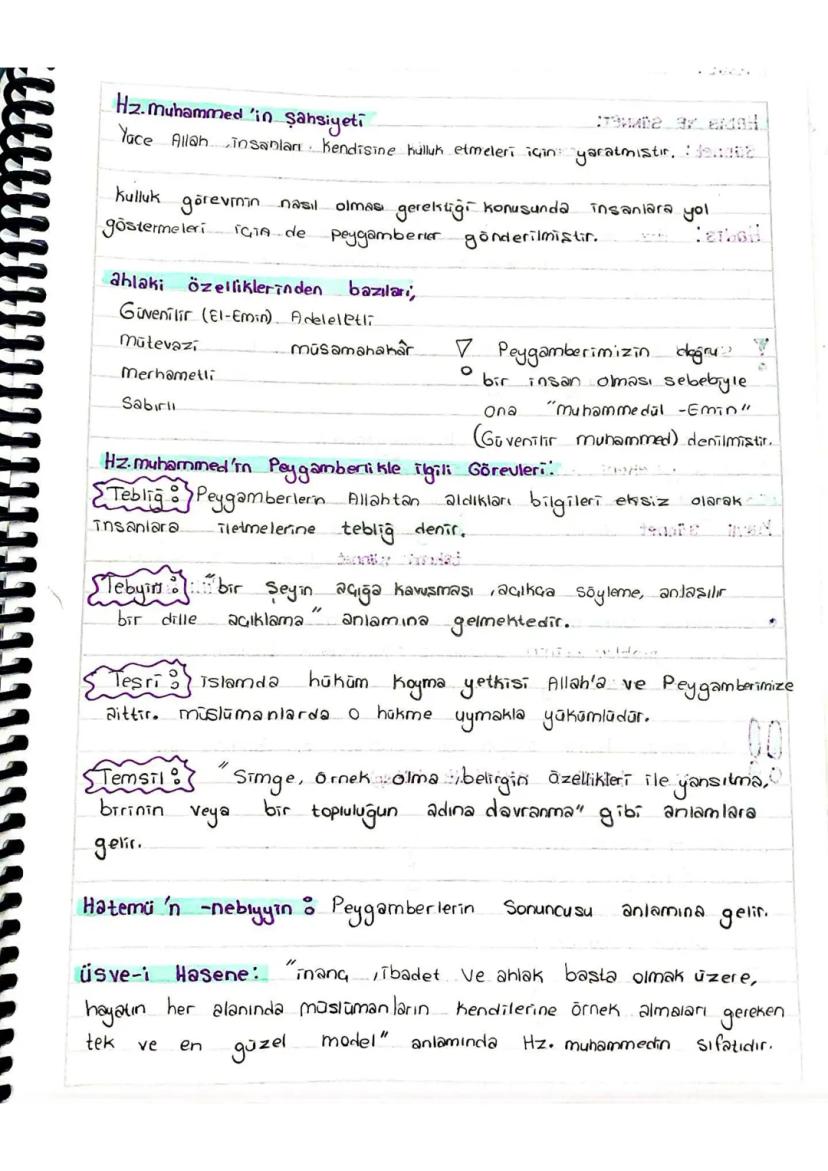 Hz. muhammed 'in şahsiyeti
Yüce Allah, insanları kendisine kulluk etmeleri için yaratmıştır.
Kulluk görevinin nasıl olması gerektiği konusunda insanlara yol
göstermeleri için de peygamberler gönderilmiştir.
ahlaki özelliklerinden bazıları;
Güvenilir (El-Emin) Adeletli
mütevazi müsamahakâr
merhametli
Sabırlı
Peygamberimizin doğru
bir insan olması sebebiyle
ona "muhammedül -Emin"
(Güvenilir muhammed) denilmiştir.
Hz. muhammed'in Peygamberlikle ilgili Görevleri:
Tebliğ: Peygamberlerin Allahtan aldıkları bilgileri eksiz olarak
insanlara iletmelerine tebliğ denir.
Tebyin: "bir şeyin açığa kavuşması, açıkça söyleme, anlaşılır
bir dille açıklama" anlamına gelmektedir.
Teşri: islamda hüküm koyma yetkisi Allah'a ve Peygamberimize
aittir. müslümanlarda o hükme uymakla yükümlüdür.
Temsil: "Simge, örnek olma, belirgin özellikleri ile yansıtma,
birinin veya bir topluluğun adına davranma" gibi anlamlara
gelir.
Hatemü 'n -nebiyyin: Peygamberlerin Sonuncusu anlamına gelir.
üsve-i Hasene: "inanç, ibadet ve ahlak başta olmak üzere,
hayatın her alanında müslümanların kendilerine örnek almaları gereken
tek ve en güzel model" anlamında Hz. muhammedin sıfatıdır.